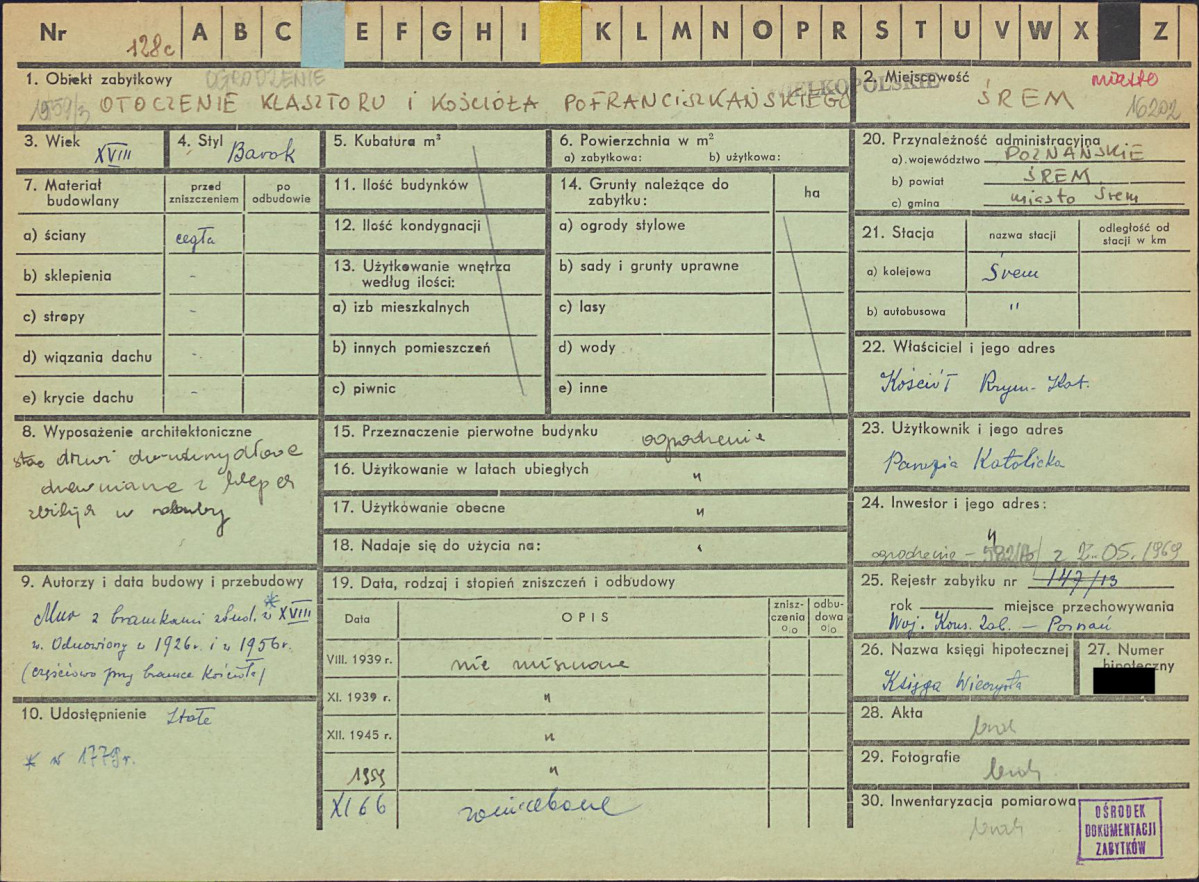 Nr 128c A B C E F G H I K L M N O P R S T U V W X Z
1. Obiekt zabytkowy OGRODZENIE
OTOCZENIE KLASZTORU I KOŚCIOŁA POFRANCISZKAŃSKIEGO
WIELKOPOLSKIE
2. Miejscowość miasto
ŚREM 16202
3. Wiek XVIII
4. Styl Barok
5. Kubatura m³
6. Powierzchnia w m²
a) zabytkowa: b) użytkowa:
7. Materiał budowlany
przed zniszczeniem
po odbudowie
a) ściany cegła
b) sklepienia -
c) stropy -
d) wiązania dachu -
e) krycie dachu -
8. Wyposażenie architektoniczne
drzwi
drewniane z
w
9. Autorzy i data budowy i przebudowy
Mur z bramkami zbud. w * XVIII
w. Odnowiony w 1926r. i w 1956r.
(częściowo przy bramce Kościoła)
10. Udostępnienie Stałe
* w 1779r.
11. Ilość budynków
12. Ilość kondygnacji
13. Użytkowanie wnętrza
według ilości:
a) izb mieszkalnych
b) innych pomieszczeń
c) piwnic
14. Grunty należące do
zabytku:
ha
a) ogrody stylowe
b) sady i grunty uprawne
c) lasy
d) wody
e) inne
15. Przeznaczenie pierwotne budynku ogrodzenie
16. Użytkowanie w latach ubiegłych "
17. Użytkowanie obecne "
18. Nadaje się do użycia na:
19. Data, rodzaj i stopień zniszczeń i odbudowy
Data
OPIS
znisz-
czenia
%
odbu-
dowa
%
VIII. 1939 r. nie
XI. 1939 r. "
XII. 1945 r. "
1959 "
XI 66 zaniedbane
20. Przynależność administracyjna
a) województwo POZNAŃSKIE
b) powiat ŚREM
c) gmina miasto Śrem
21. Stacja
nazwa stacji
odległość od
stacji w km
a) kolejowa Śrem
b) autobusowa "
22. Właściciel i jego adres
Kościół Rzym.-Kat.
23. Użytkownik i jego adres
Parafia Katolicka
24. Inwestor i jego adres:
"
ogrodzenie - z 05.1969
25. Rejestr zabytku nr 147/13
rok miejsce przechowywania
Woj. Kons. Zab. - Poznań
26. Nazwa księgi hipotecznej
Księga Wieczysta
27. Numer
hipoteczny
28. Akta
brak
29. Fotografie
brak
30. Inwentaryzacja pomiarowa
brak
OŚRODEK
DOKUMENTACJI
ZABYTKÓW